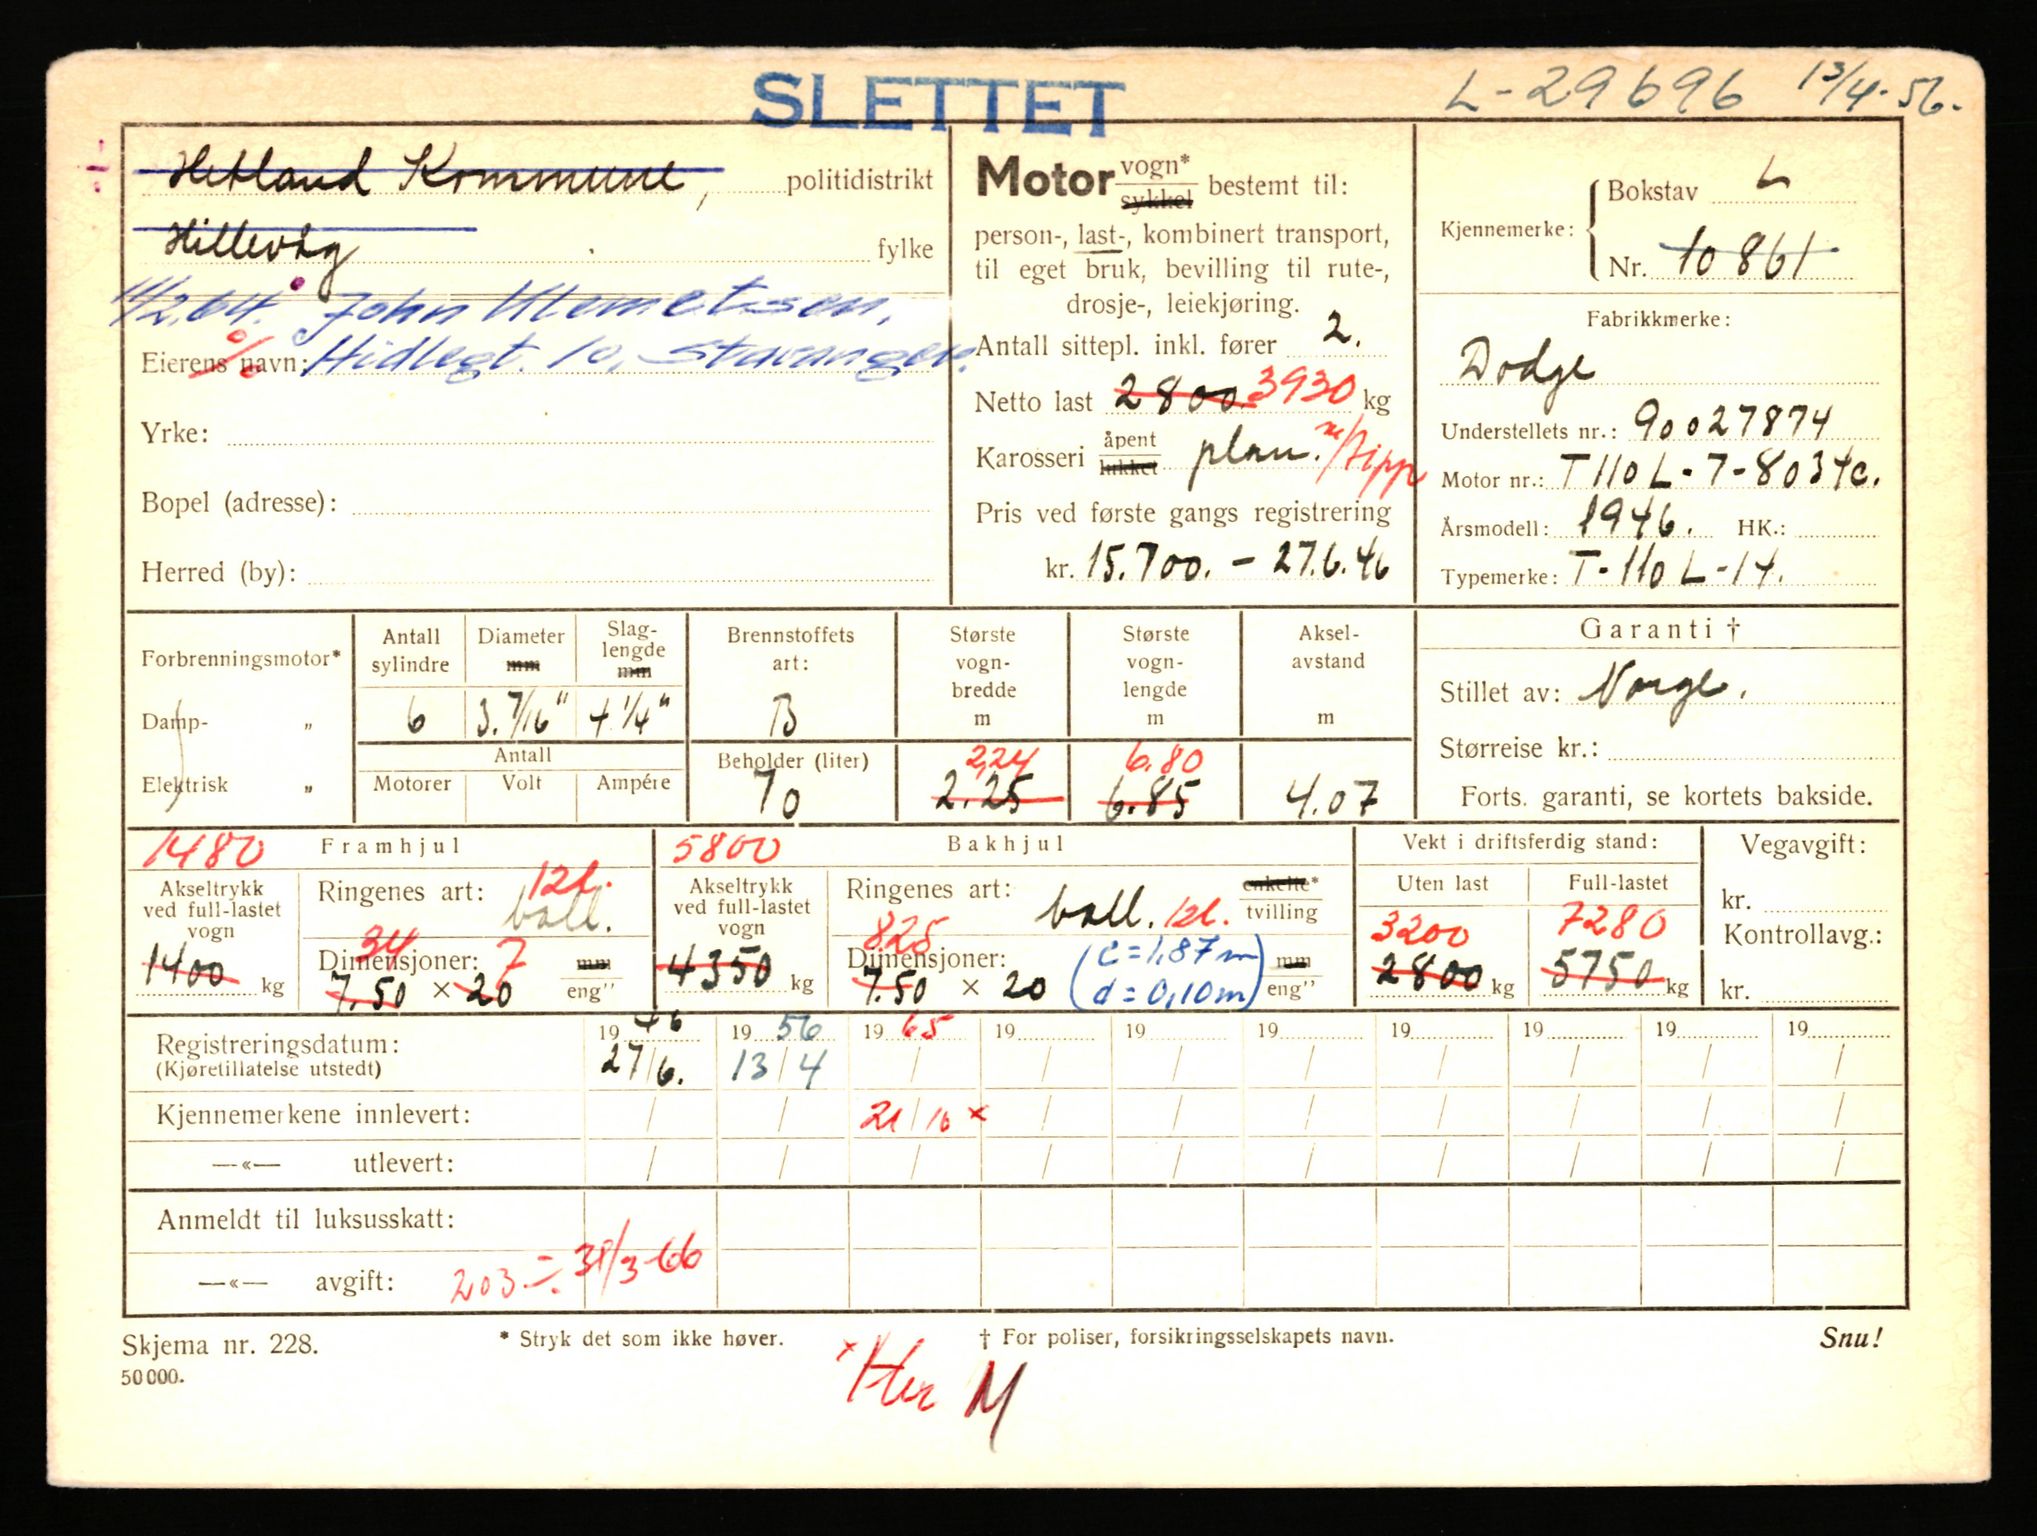 SLETTET
L-29696 13/4-56.
Hetland Kommune, politidistrikt
Hillevåg fylke
14/2.64. John Klemetsen,
Eierens navn: Hidlegt. 10, Stavanger.
Yrke:
Bopel (adresse):
Herred (by):
Motor vogn* sykkel bestemt til:
person-, last-, kombinert transport,
til eget bruk, bevilling til rute-,
drosje-, leiekjøring.
Antall sittepl. inkl. fører 2.
Netto last 2800 3930 kg
Karosseri åpent lukket plan. m/tipp
Pris ved første gangs registrering
kr. 15.700. - 27.6.46
Kjennemerke: Bokstav L
Nr. 10861
Fabrikkmerke:
Dodge
Understellets nr.: 90027874
Motor nr.: T110L-7-8034C.
Årsmodell: 1946. HK.:
Typemerke: T-110L-14.
Forbrenningsmotor*
Damp- „
Elektrisk „
Antall sylindre
Diameter mm
Slaglengde mm
6 3.7/16" 4 1/4"
Antall
Motorer Volt Ampére
Brennstoffets art:
B
Beholder (liter)
70
Største vognbredde m
2,24
2.25
Største vognlengde m
6.80
6.85
Akselavstand m
4.07
Garanti †
Stillet av: Norge.
Størreise kr.:
Forts. garanti, se kortets bakside.
1480 Framhjul
Akseltrykk ved full-lastet vogn
1400 kg
Ringenes art: 12l.
ball.
34 7
Dimensjoner: mm
7.50 × 20 eng"
5800 Bakhjul
Akseltrykk ved full-lastet vogn
4350 kg
Ringenes art: ball. 12l. enkelte* tvilling
825
Dimensjoner: (c = 1,87 m mm
7.50 × 20 d = 0,10m) eng"
Vekt i driftsferdig stand:
Uten last Full-lastet
3200 7280
2800 kg 5750 kg
Vegavgift:
kr.
Kontrollavg.:
kr.
Registreringsdatum: 19 46 19 56 19 65 19 19 19 19 19 19 19
(Kjøretillatelse utstedt) 27/6. 13/4 / / / / / / / /
Kjennemerkene innlevert: / / 21/16 × / / / / / / /
—«— utlevert: / / / / / / / / / /
Anmeldt til luksusskatt:
—«— avgift: 203 ÷ 31/3-66
Skjema nr. 228. * Stryk det som ikke høver. † For poliser, forsikringsselskapets navn. Snu!
50 000.
× Her M